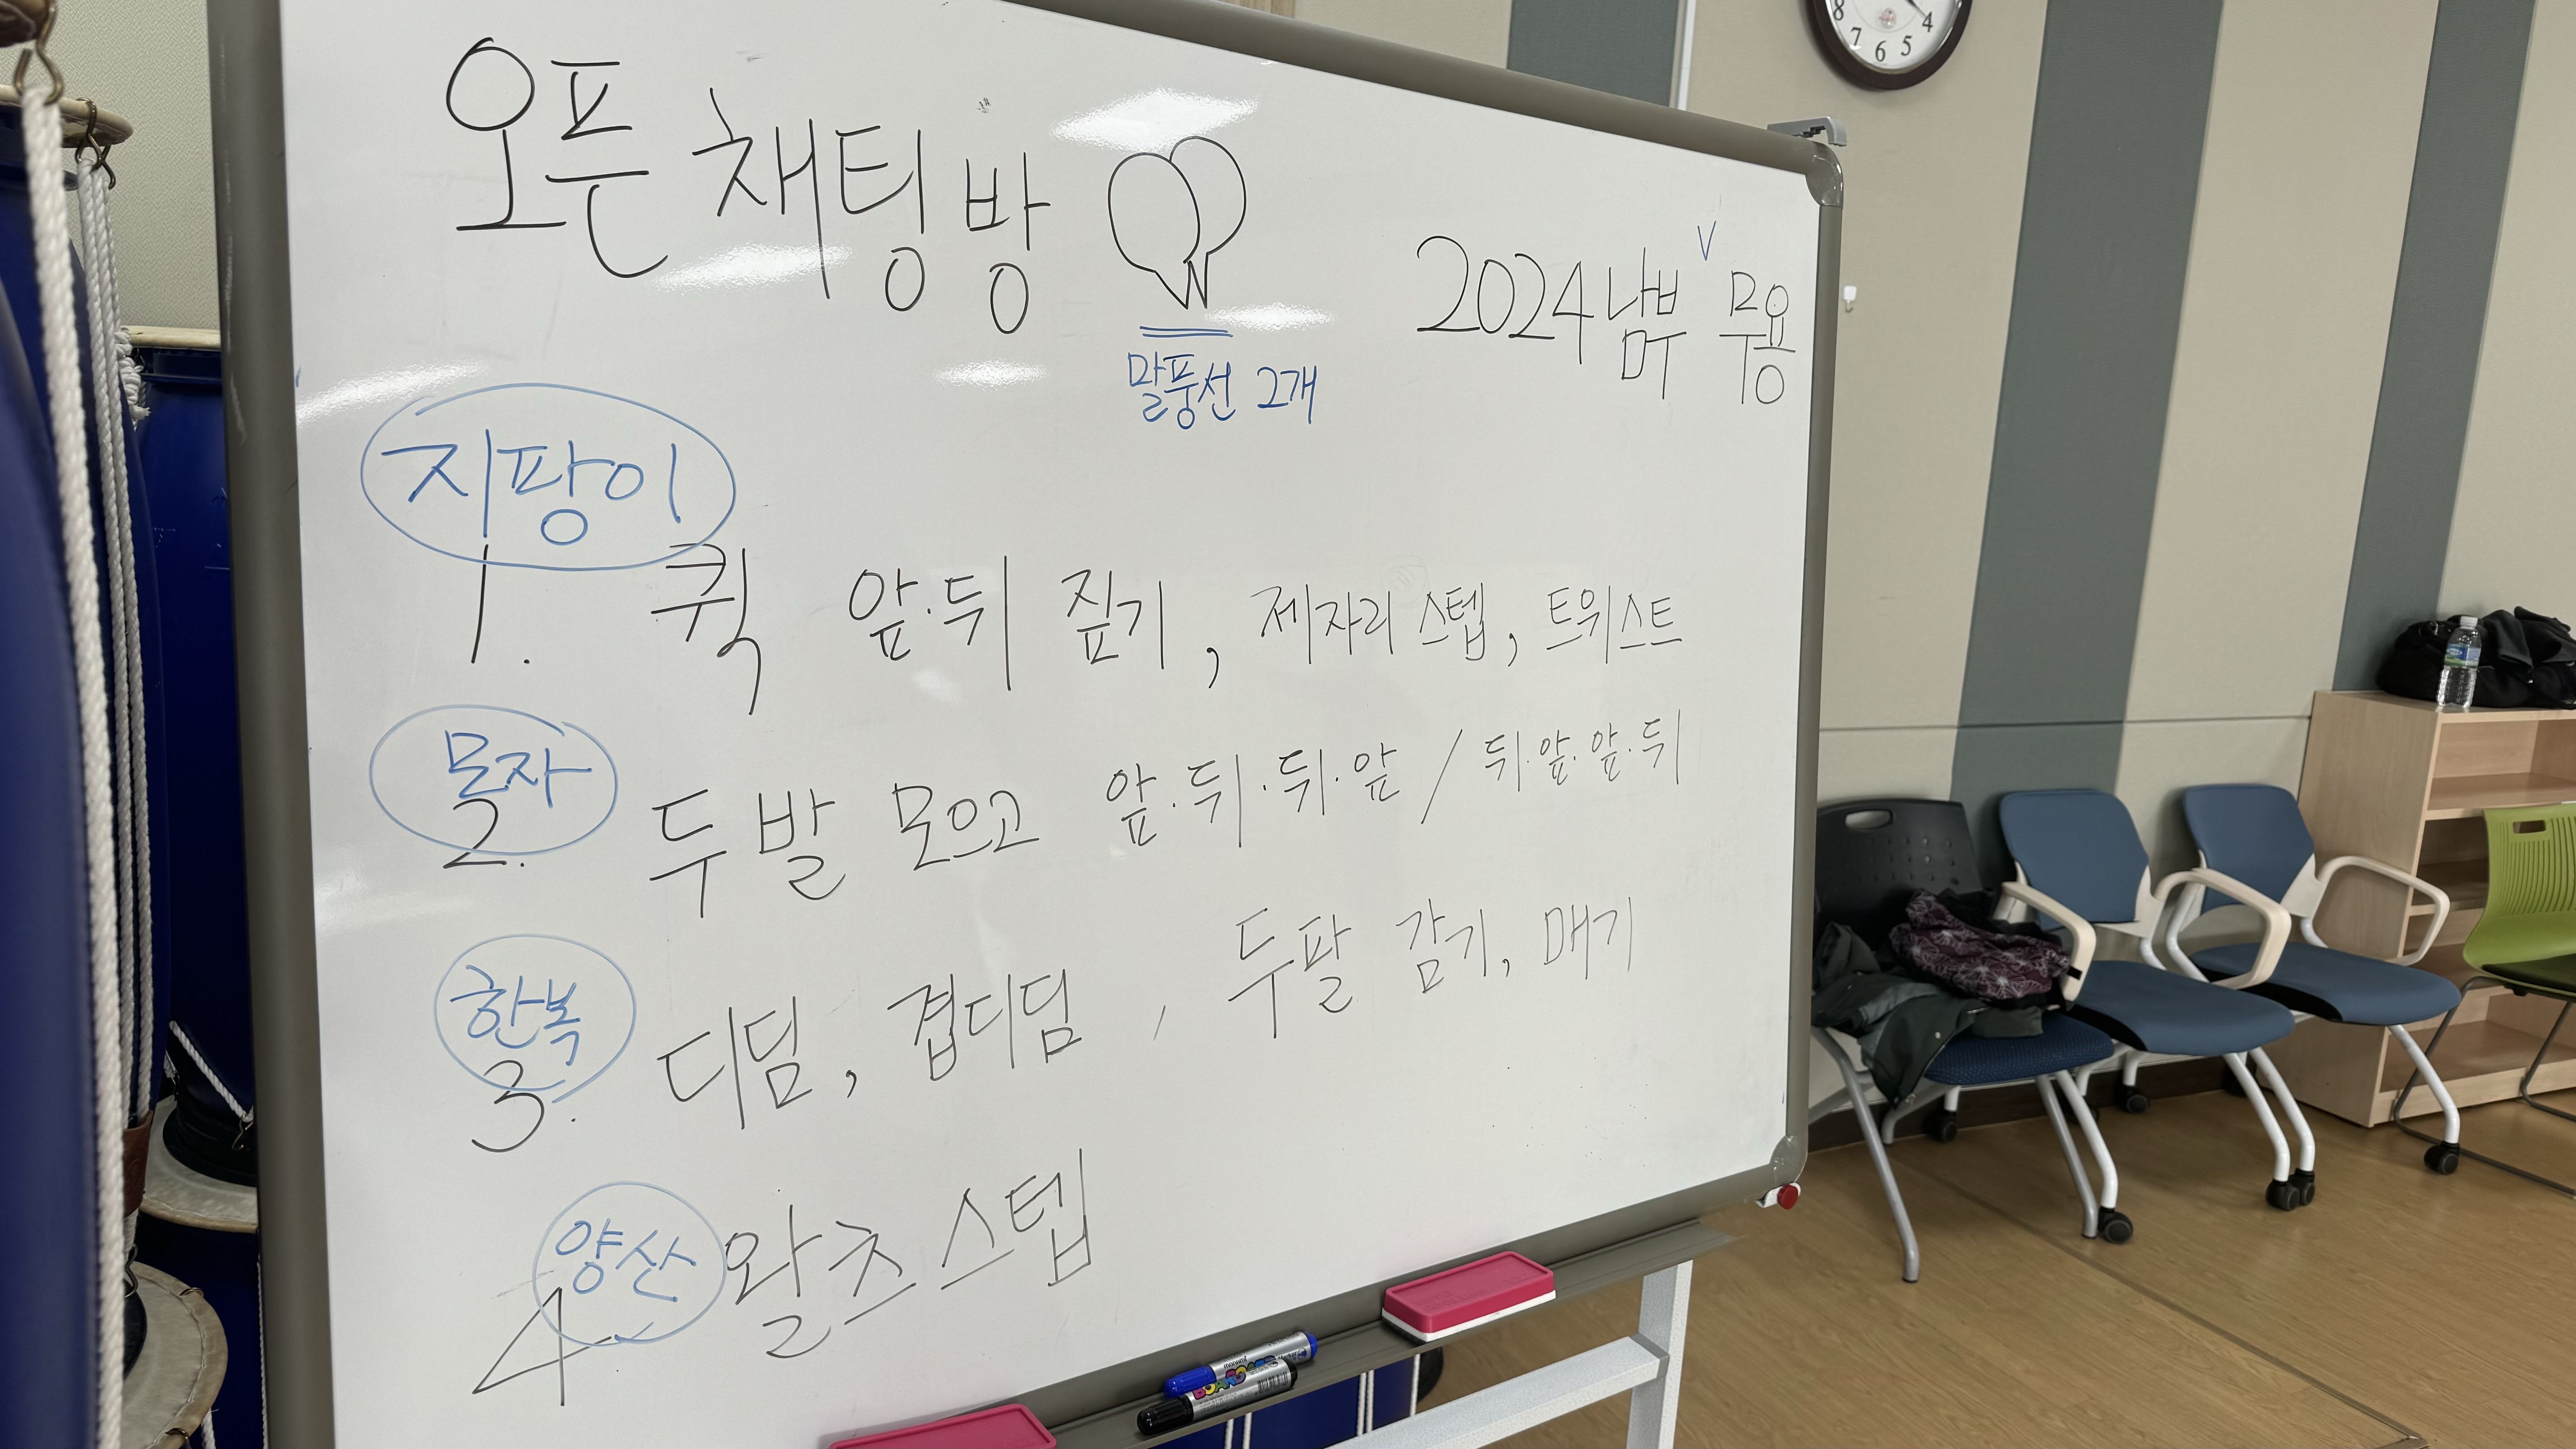 오픈 채팅방
말풍선 2개
2024 남부 V 무용
지팡이
1. 퀵 앞·뒤 짚기, 제자리 스텝, 트위스트
모자
2. 두 발 모으고 앞·뒤·뒤·앞 / 뒤·앞·앞·뒤
한복
3. 디딤, 겹디딤, 두팔 감기, 매기
양산
4 왈츠 스텝
8 7 6 5 4
monami
BOARD